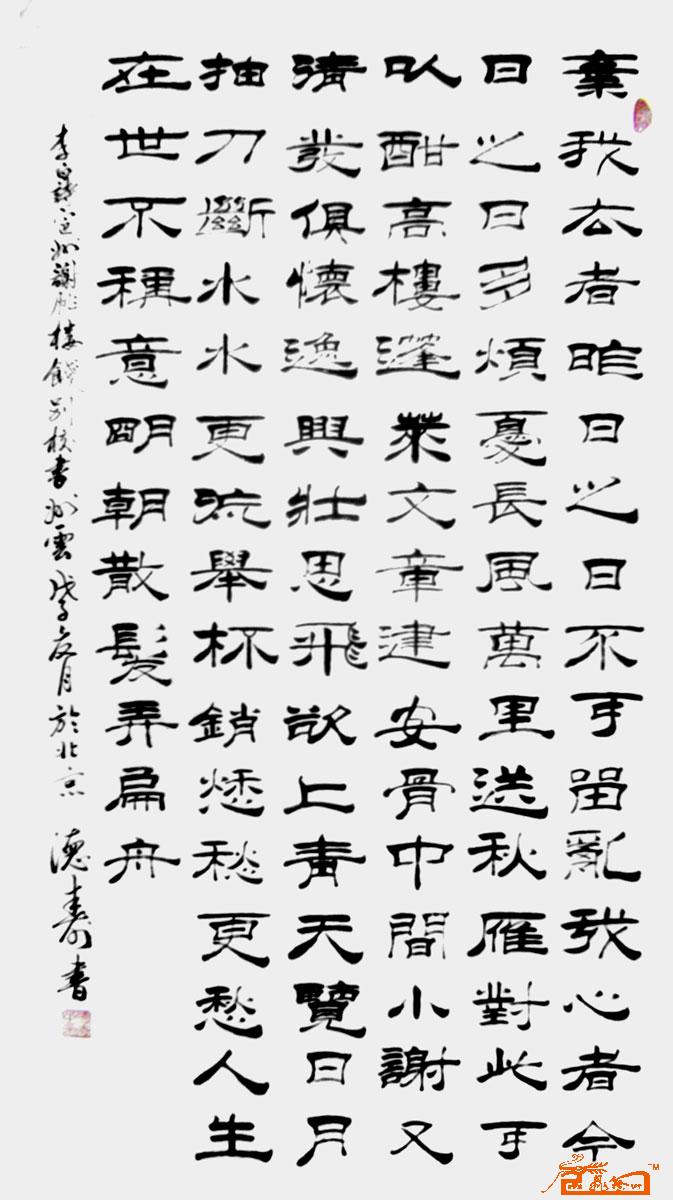 棄我去者昨日之日不可留亂我心者今
日之日多煩憂長風萬里送秋雁對此可
以酣高樓蓬萊文章建安骨中間小謝又
清發俱懷逸興壯思飛欲上青天覽日月
抽刀斷水水更流舉杯銷愁愁更愁人生
在世不稱意明朝散髮弄扁舟
李白詩宣州謝朓樓餞別校書叔雲戊子夏月於北京
德壽書